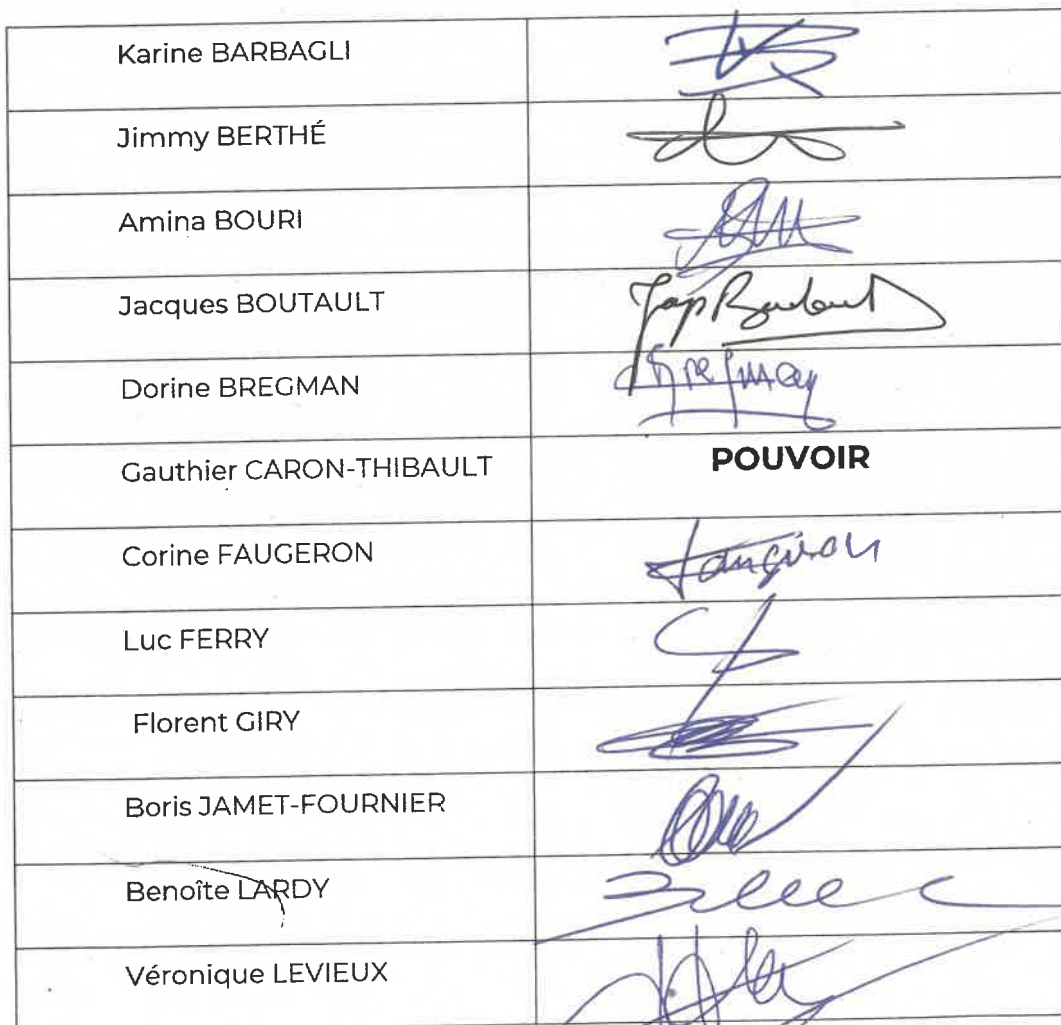 Karine BARBAGLI
Jimmy BERTHÉ
Amina BOURI
Jacques BOUTAULT
Dorine BREGMAN
Gauthier CARON-THIBAULT
POUVOIR
Corine FAUGERON
Luc FERRY
Florent GIRY
Boris JAMET-FOURNIER
Benoîte LARDY
Véronique LEVIEUX